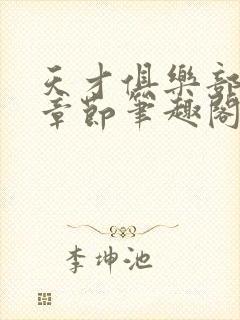 天才俱樂部
章節筆趣閣
李坤池